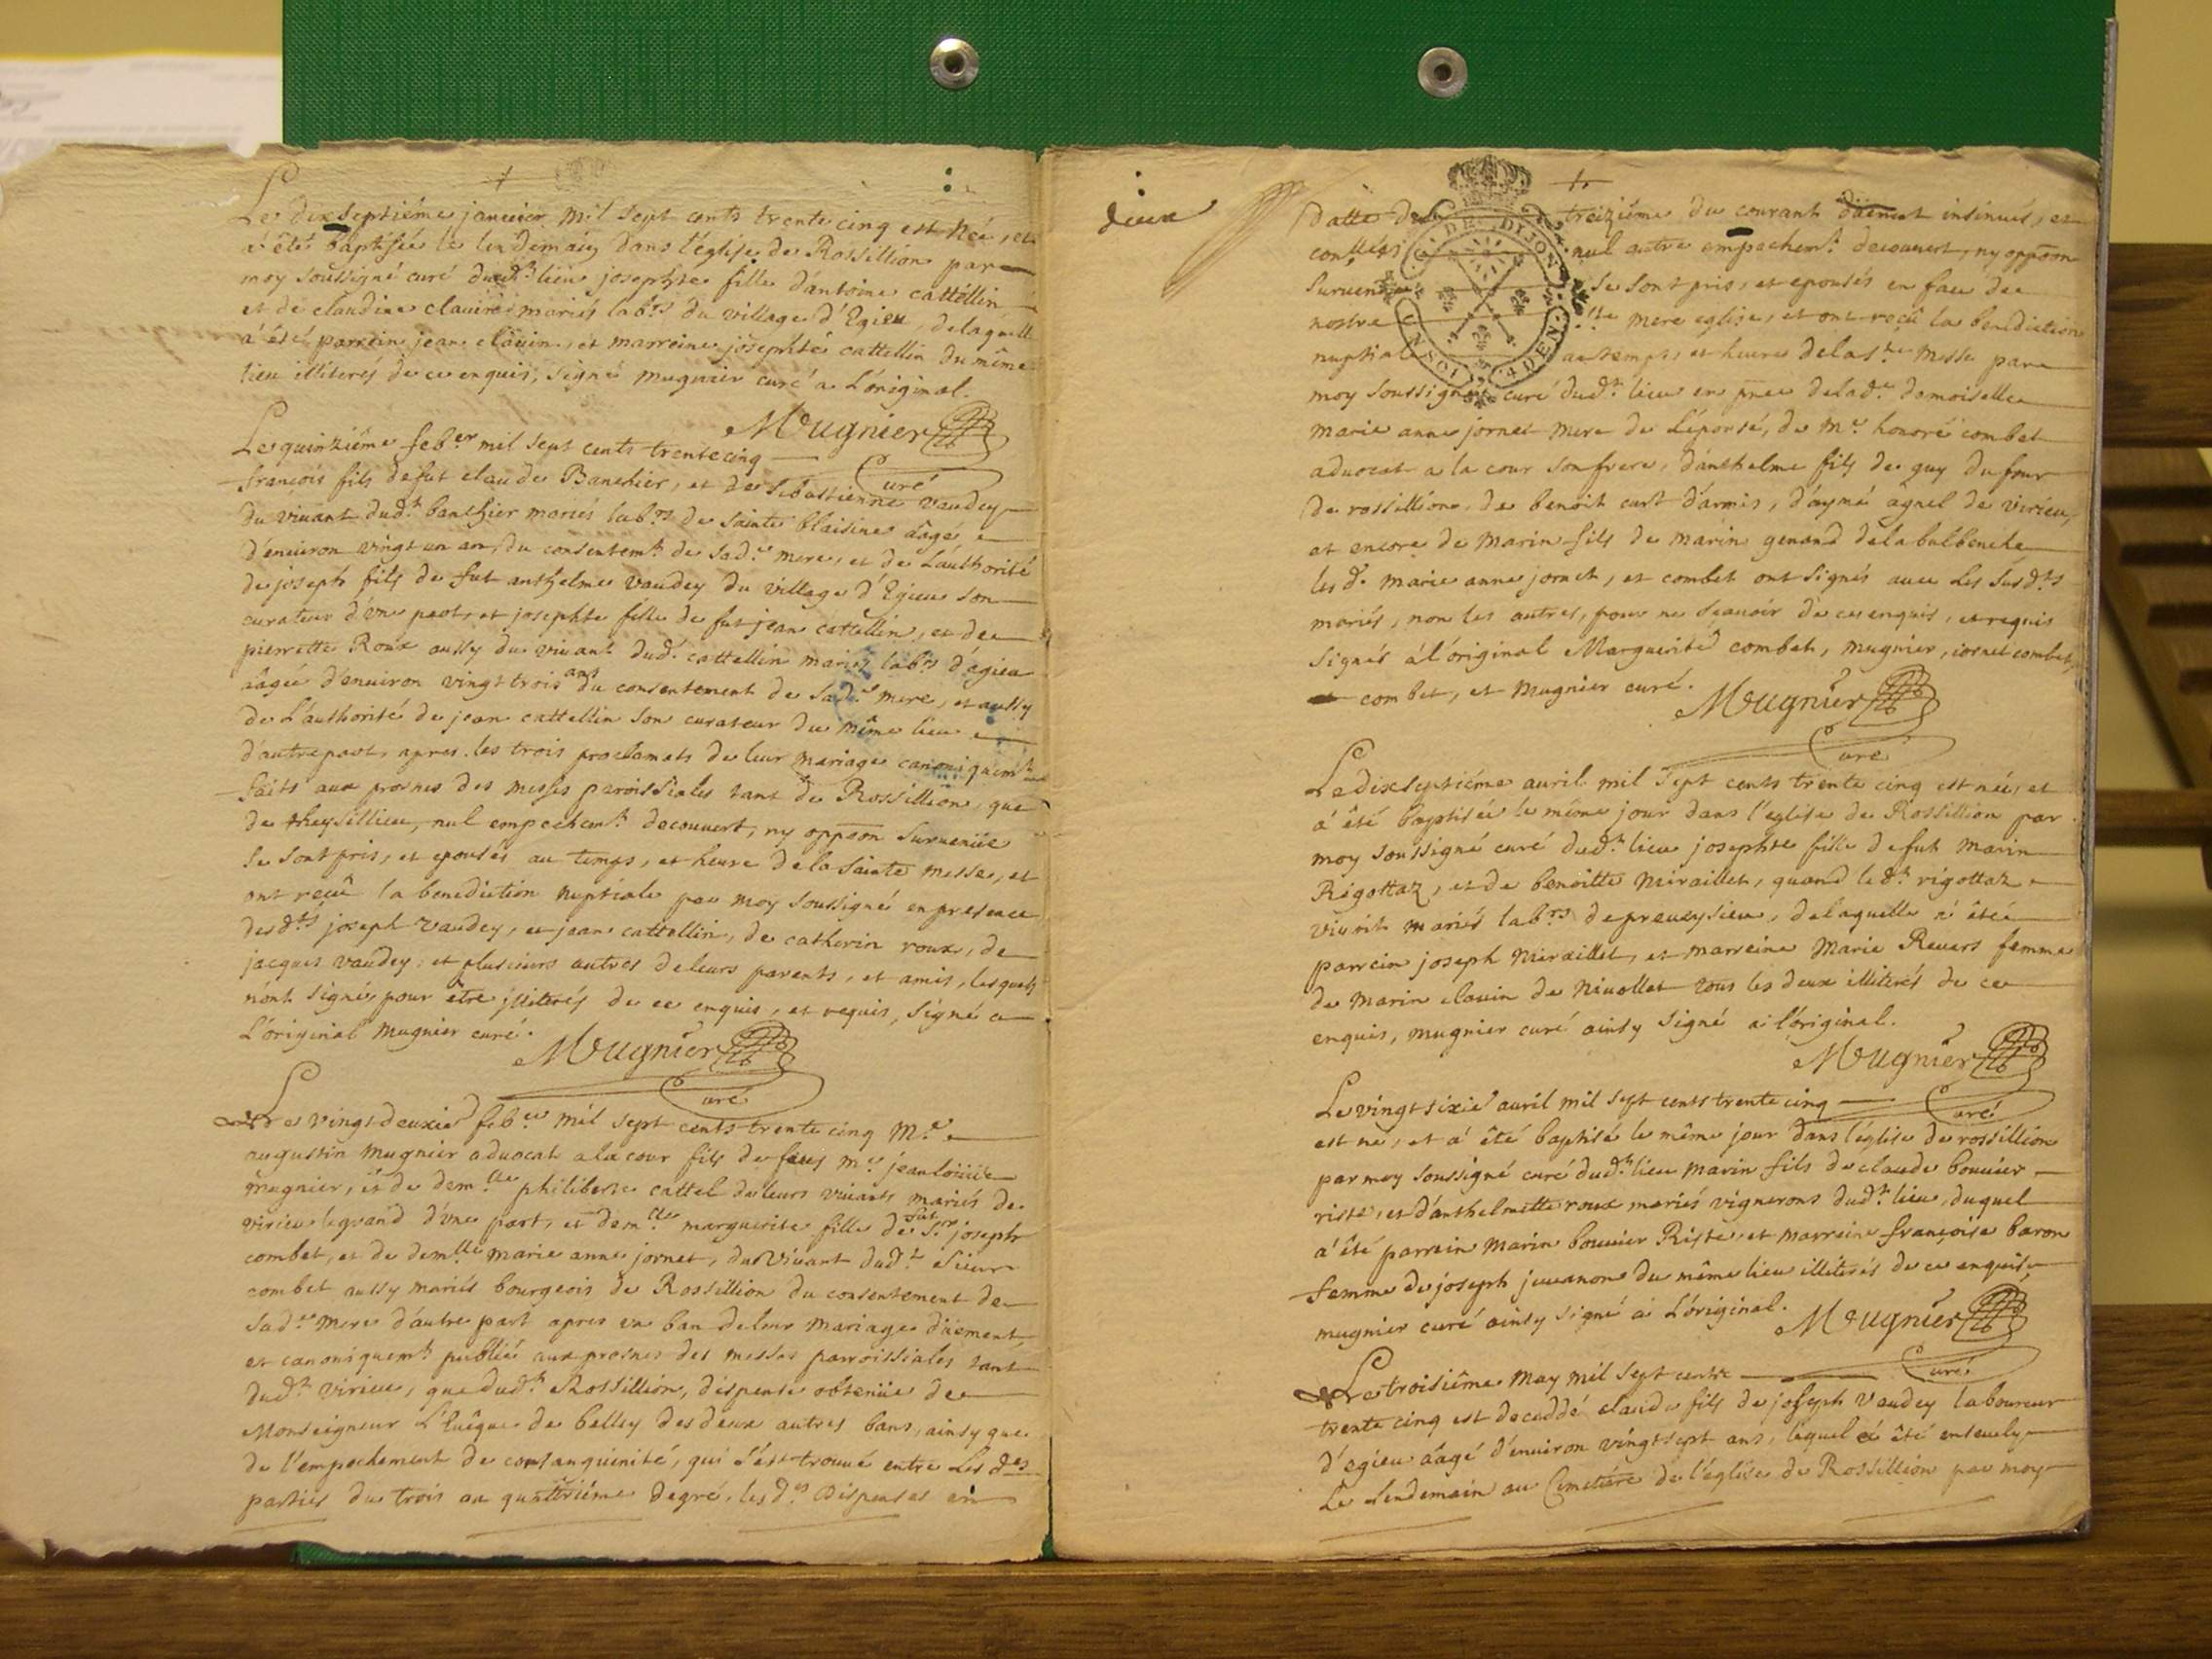 Le dixseptiéme janvier mil sept cents trente cinq est née, et
a été baptisée le lendemain dans l'église de Rossillion par
moy soussigné curé dudt lieu josephte fille d'antoine cattellin
et de claudine mariés labrs du village d'Egieu, delaquelle
a été parrein jean clouin, et marreine josephte cattellin du même
lieu illiterés de ce enquis, signé mugnier curé a l'original.
Mugnier
Curé
Le quinziéme feber mil sept cents trente cinq
françois fils de fut claude Banchier, et de sebastienne vaudey
du vivant dudt banchier mariés labrs de sainte blaisine âagé
d'environ vingt un an, du consentemt de sade mere, et de l'authorité
de joseph fils de fut anthelme vaudey du village d'Egieu son
curateur d'vne part, et josephte fille de fut jean cattellin, et de
pierrette Roux aussy du vivant dudt cattellin mariez labrs d'égieu
aâgée d'environ vingt trois ans du consentement de sade mere, et aussy
de l'authorité de jean cattellin son curateur du même lieu
d'autre part, apres les trois proclamats de leur mariage canoniquemt
faits aux prosnes des messes paroissiales tant de Rossillion, que
de theysillieu, nul empechemt decouvert, ny oppõon survenüe
se sont pris, et epousés au temps, et heure de la sainte messe, et
ont reçû la benediction nuptiale par moy soussigné en presence
desdts joseph vaudey, et jean cattellin, de catherin roux, de
jacques vaudey, et plusieurs autres de leurs parents, et amis, lesquels
n'ont signé, pour être illiterés de ce enquis, et requis, signé a
L'original mugnier curé.
Mugnier
Curé
Le vingt deuxie feber mil sept cents trente cinq Mre
augustin mugnier advocat a la cour fils de feus mre jean
mugnier, et de demlle philiberte cattel de leurs vivants mariés de
virieu legrand d'vne part, et demlle marguerite fille de fut Sr joseph
combet, et de demlle marie anne jornet, du vivant dudt Sieur
combet aussy mariés bourgeois de Rossillion du consentement de
sade mere d'autre part apres vn ban de leur mariage düement,
et canoniquemt publié aux prosnes des messes parroissiales tant
dudt virieu, que dudt Rossillion, dispense obtenüe de
Monseigneur L'Evêque de belley des deux autres bans, ainsy que
de l'empechement de consanguinité, qui s'est trouvé entre les des
parties du trois au quatriéme degré, lesdes dispenses en
deux
datte du treiziéme du courant düement insinués, et
nul autre empechemt decouvert, ny oppõon
surven se sont pris, et epousés en face de
nostre ste mere eglise, et ont reçû la benediction
nuptiale au temps, et heure de la ste messe par
DE DIJON
4 DEN
moy soussigné curé dudt lieu en pñce de lade demoiselle
marie anne jornet mere de l'épouse, de mre honoré combet
advocat a la cour son frere, d'anthelme fils de guy dufour
de rossillion, de benoit curt d'armis, d'aymé agnel de virieu,
et encore de marin fils de marin genand de la balbenche
lesd. marie anne jornet, et combet ont signés avec les susdts
mariés, non les autres, pour ne sçavoir de ce enquis, et requis
signés à l'original Marguerite combet, mugnier, jornet combet,
combet, et Mugnier curé.
Mugnier
Curé
Le dixseptiéme avril mil sept cents trente cinq est née, et
a été baptisée le même jour dans l'église de Rossillion par
moy soussigné curé dudt lieu josephte fille de fut marin
Rigottaz, et de benoitte miraillet, quand ledt rigottaz
vivoit mariés labrs de preveysieu, delaquelle a été
parrein joseph miraillet, et marreine Marie Revers femme
de marin clouin de nivollet tous les deux illiterés de ce
enquis, mugnier curé ainsy signé a l'original.
Mugnier
Curé
Le vingt sixie avril mil sept cents trente cinq
est né, et a été baptisé le même jour dans l'église de rossillion
par moy soussigné curé dudt lieu marin fils de claude bouvier
riste, et d'anthelmette roux mariés vignerons dudt lieu, duquel
a été parrein marin bouvier Riste, et marreine françoise baron
femme de joseph juvanon du même lieu illiterés de ce enquis,
mugnier curé ainsy signé a l'original.
Mugnier
Curé
Le troisiéme may mil sept cents
trente cinq est deceddé claude fils de joseph vaudey laboureur
d'egieu aâgé d'environ vingt sept ans, lequel a été ensevely
le lendemain au Cimetiére de l'église de Rossillion par moy